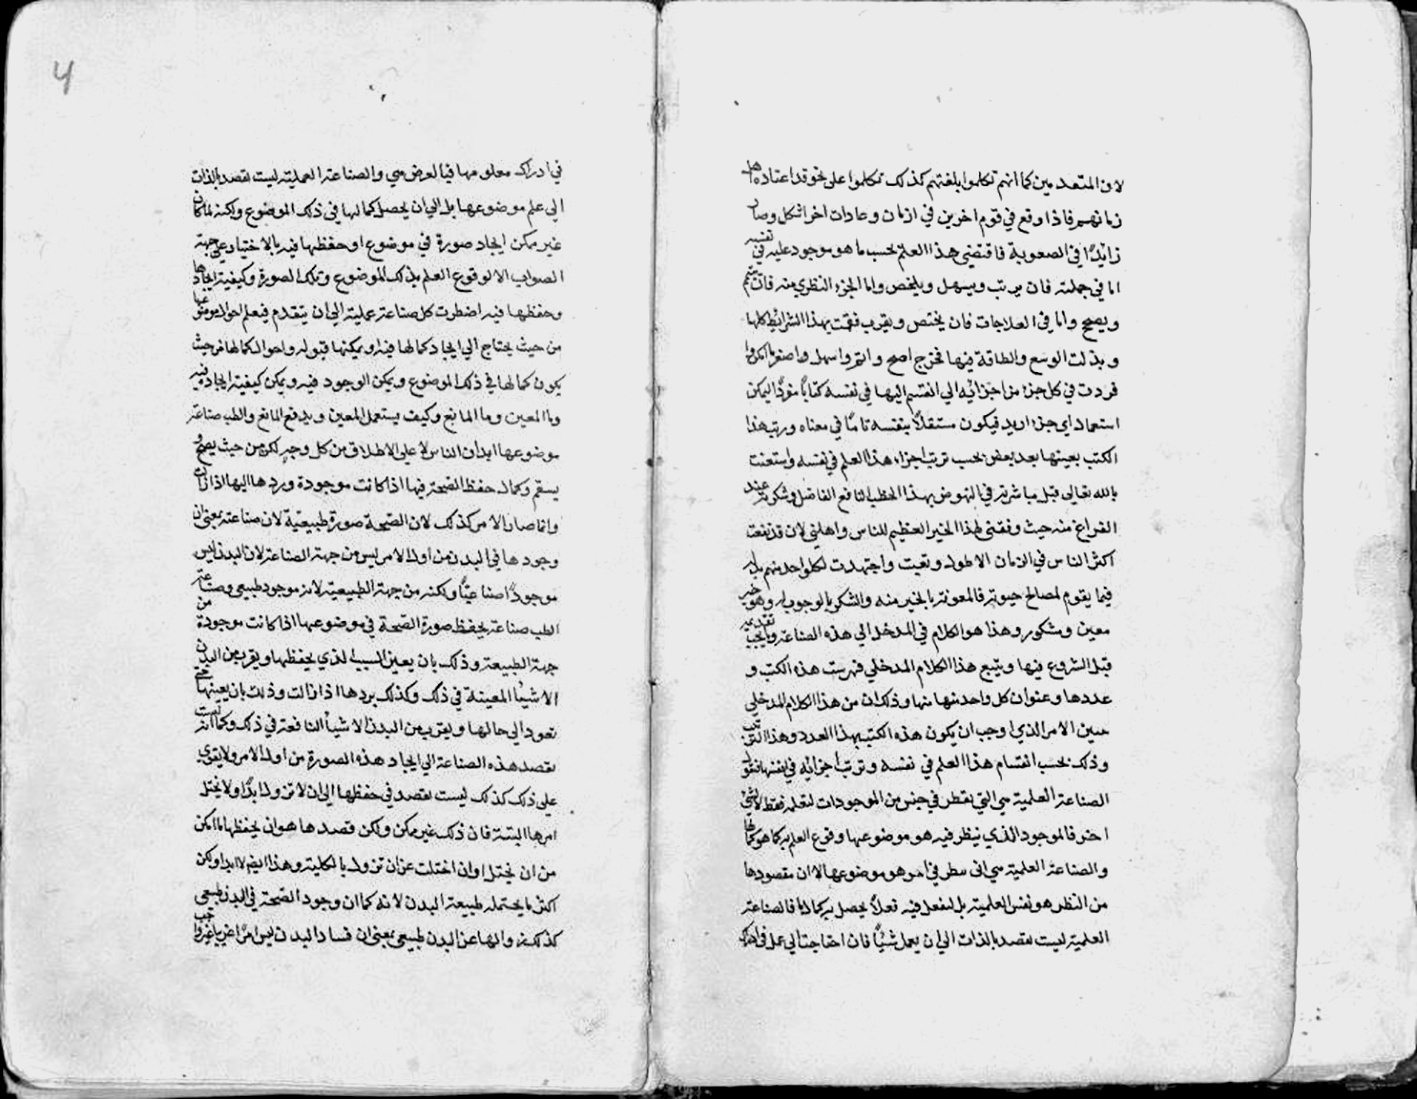 لان المتقدمين كما انهم تكلموا بلغتهم كذلك تكلموا على نحو قد اعتاده اهل
زمانهم فاذا وقع في قوم اخرين في ازمان وعادات اخر اشكل وصار
زايدًا في الصعوبة فاقتضى هذا العلم بحسب ما هو موجود عليه في نفسه
اما في جملته فان يرتب ويسهل ويلخص واما الجزء النظري منه فان يتمم
ويصحح واما في العلاجات فان يختص ويقرب فقمت بهذا الشرايط كلها
وبذلت الوسع والطاقة فيها فخرج اصح واتم واسهل
فردت في كل جزء من اجزائه الى انقسم اليها في نفسه كتابًا مفردًا ليمكن
استعماد اي جزء اريد فيكون مستقلاً بنفسه تامًا في معناه ورتب هذا
الكتب بعينها بعد بعض بحسب ترتب اجزاء هذا العلم في نفسه واستعنت
بالله تعالى قبل مباشرته في النهوض بهذا الخطب النافع الفاضل وشكرته عند
الفراغ منه حيث وفقنى لهذا الخير العظيم للناس واهلني لان قد نفعت
اكثر الناس في الزمان الاطول وتعبت واجتهدت لكل واحد منهم
فيما يقوم لمصالح حيوته فالمعونة بالخير منه والشكر بالوجوب له وهو خير
معين ومشكور وهذا هو الكلام في المدخل الى هذه الصناعة وما يجب تقديمه
قبل الشروع فيها ويتبع هذا الكلام المدخلي فهرست هذه الكتب و
عددها وعنوان كل واحد منها وذلك ان من هذا الكلام المدخلي
حين الامر الذي اوجب ان يكون هذه الكتب بهذا العدد وهذا الترتيب
وذلك بحسب انقسام هذا العلم في نفسه وترتب اجزائه في نفسها فنقول
الصناعة العلمية هي التي تنظر في جنس من الموجودات لتعلمه فقط لا لشئ
اخر فالموجود الذي ينظر فيه هو موضوعها ووقوع العلم به كما هو كمالها
والصناعة العلمية هي التي تنظر في امر هو موضوعها الا ان مقصودها
من النظر هو نفس العلمية بل لتفعل فيه فعلاً يحصل به كمالا ما فالصناعة
العلمية ليست تقصد بالذات الى ان يعمل شيئًا فان احتاجت الى عمل في
في ادراك معلومها فبالعرض هي والصناعة العملية ليست تقصد بالذات
الى علم موضوعها بل الى ان يحصل كمالها في ذلك الموضوع ولكنه لما كان
غير ممكن ايجاد صورة في موضوع او حفظها فيه بالاختيار وعلى جهة
الصواب الا لوقوع العلم بذلك الموضوع وتلك الصورة وكيفية ايجادها
وحفظها فيه اضطرت كل صناعة عملية الى ان يتقدم فيعلم احوال موضوعها
من حيث يحتاج الى ايجاد كمالها فيه ويمكنها قبوله واحوال كمالها من حيث
يكون كمالها في ذلك الموضوع ويمكن الوجود فيه ويمكن كيفية ايجاده فيه
وما المعين وما المانع وكيف يستعمل المعين ويدفع المانع والطب صناعة
موضوعها ابدان الناس لا على الاطلاق من كل وجه لكن من حيث يصح و
يسقم وكمالها حفظ الصحة فيها اذا كانت موجودة وردها اليها اذا زالت
وانما صار الامر كذلك لان الصحة صورة طبيعية لان صناعة بمعنى ان
وجودها في البدن من اول الامر ليس من جهة الصناعة لان البدن ليس
موجودًا صناعيًا ولكنه من جهة الطبيعية لانه موجود طبيعي وصناعة
الطب صناعة يحفظ صورة الصحة في موضوعها اذا كانت موجودة من
جهة الطبيعة وذلك بان يعين السبب الذي يحفظها ويقرب من البدن
الاشيا المعينة في ذلك وكذلك بردها اذا زالت وذلك بان يعينها حتى
تعود الى حالها ويقرب من البدن الاشيا النافعة في ذلك وكما انه ليست
تقصد هذه الصناعة الى ايجاد هذه الصورة من اول الامر ولا يقوى
على ذلك كذلك ليست تقصد في حفظها الى ان لا تزول ابدًا ولا يختل
امرها البتة فان ذلك غير ممكن ولكن قصدها هو ان يحفظها ما امكن
من ان يختل او ان اختلت عن ان تزول بالكلية وهذا ايضا لا ابدا ولكن
اكثر ما يحتمله طبيعة البدن لانه كما ان وجود الصحة في البدن طبيعي
كذلك زوالها عن البدن طبيعي بمعنى ان فساد البدن ليس امرًا غريبا